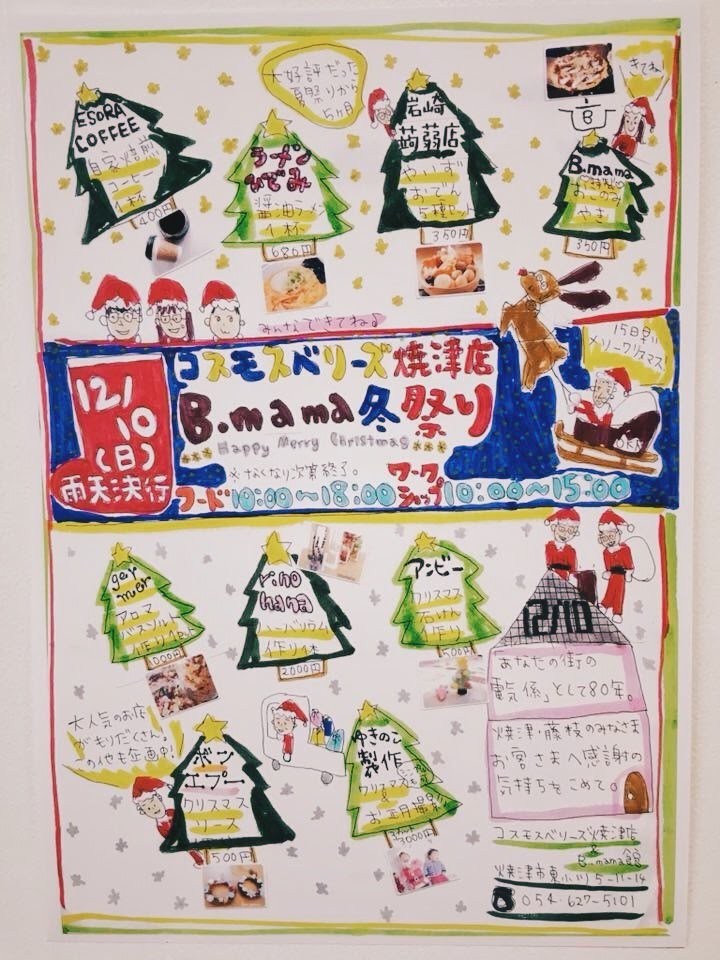 ESORA
COFFEE
自家焙煎
コーヒー
1杯
400円
大好評だった
夏祭りから
5ヶ月
ラーメン
ひでみ
醤油ラーメン
1杯
686円
岩崎
蒟蒻店
やいづ
おでん
5種セット
350円
きてね!
B
B.mama
特製
おこのみ
やき
350円
みんなできてね♪
12/10
(日)
雨天決行
コスモスベリーズ焼津店
B.mama冬祭り
Happy Merry Christmas
※なくなり次第終了。
フード10:00〜18:00
ワークショップ10:00〜15:00
15日早い
メリークリスマス
ger
mer
アロマ
バスソルト
作り
1000円
rino
hana
ハーバリウム
作り体
2000円
アンビー
クリスマス
石けん
作り
500円
12/10
あなたの街の
「電気係」として80年。
焼津・藤枝のみなさま
お客さまへ感謝の
気持ちをこめて。
大人気のお店
がもりだくさん。
の他も企画中!
ポッ
エプー
クリスマス
リース
500円
ゆきのこ
製作
クリスマス
&
お正月撮影
3000円
コスモスベリーズ焼津店
&
B.mama館
焼津市東小川5-11-14
054-627-5101